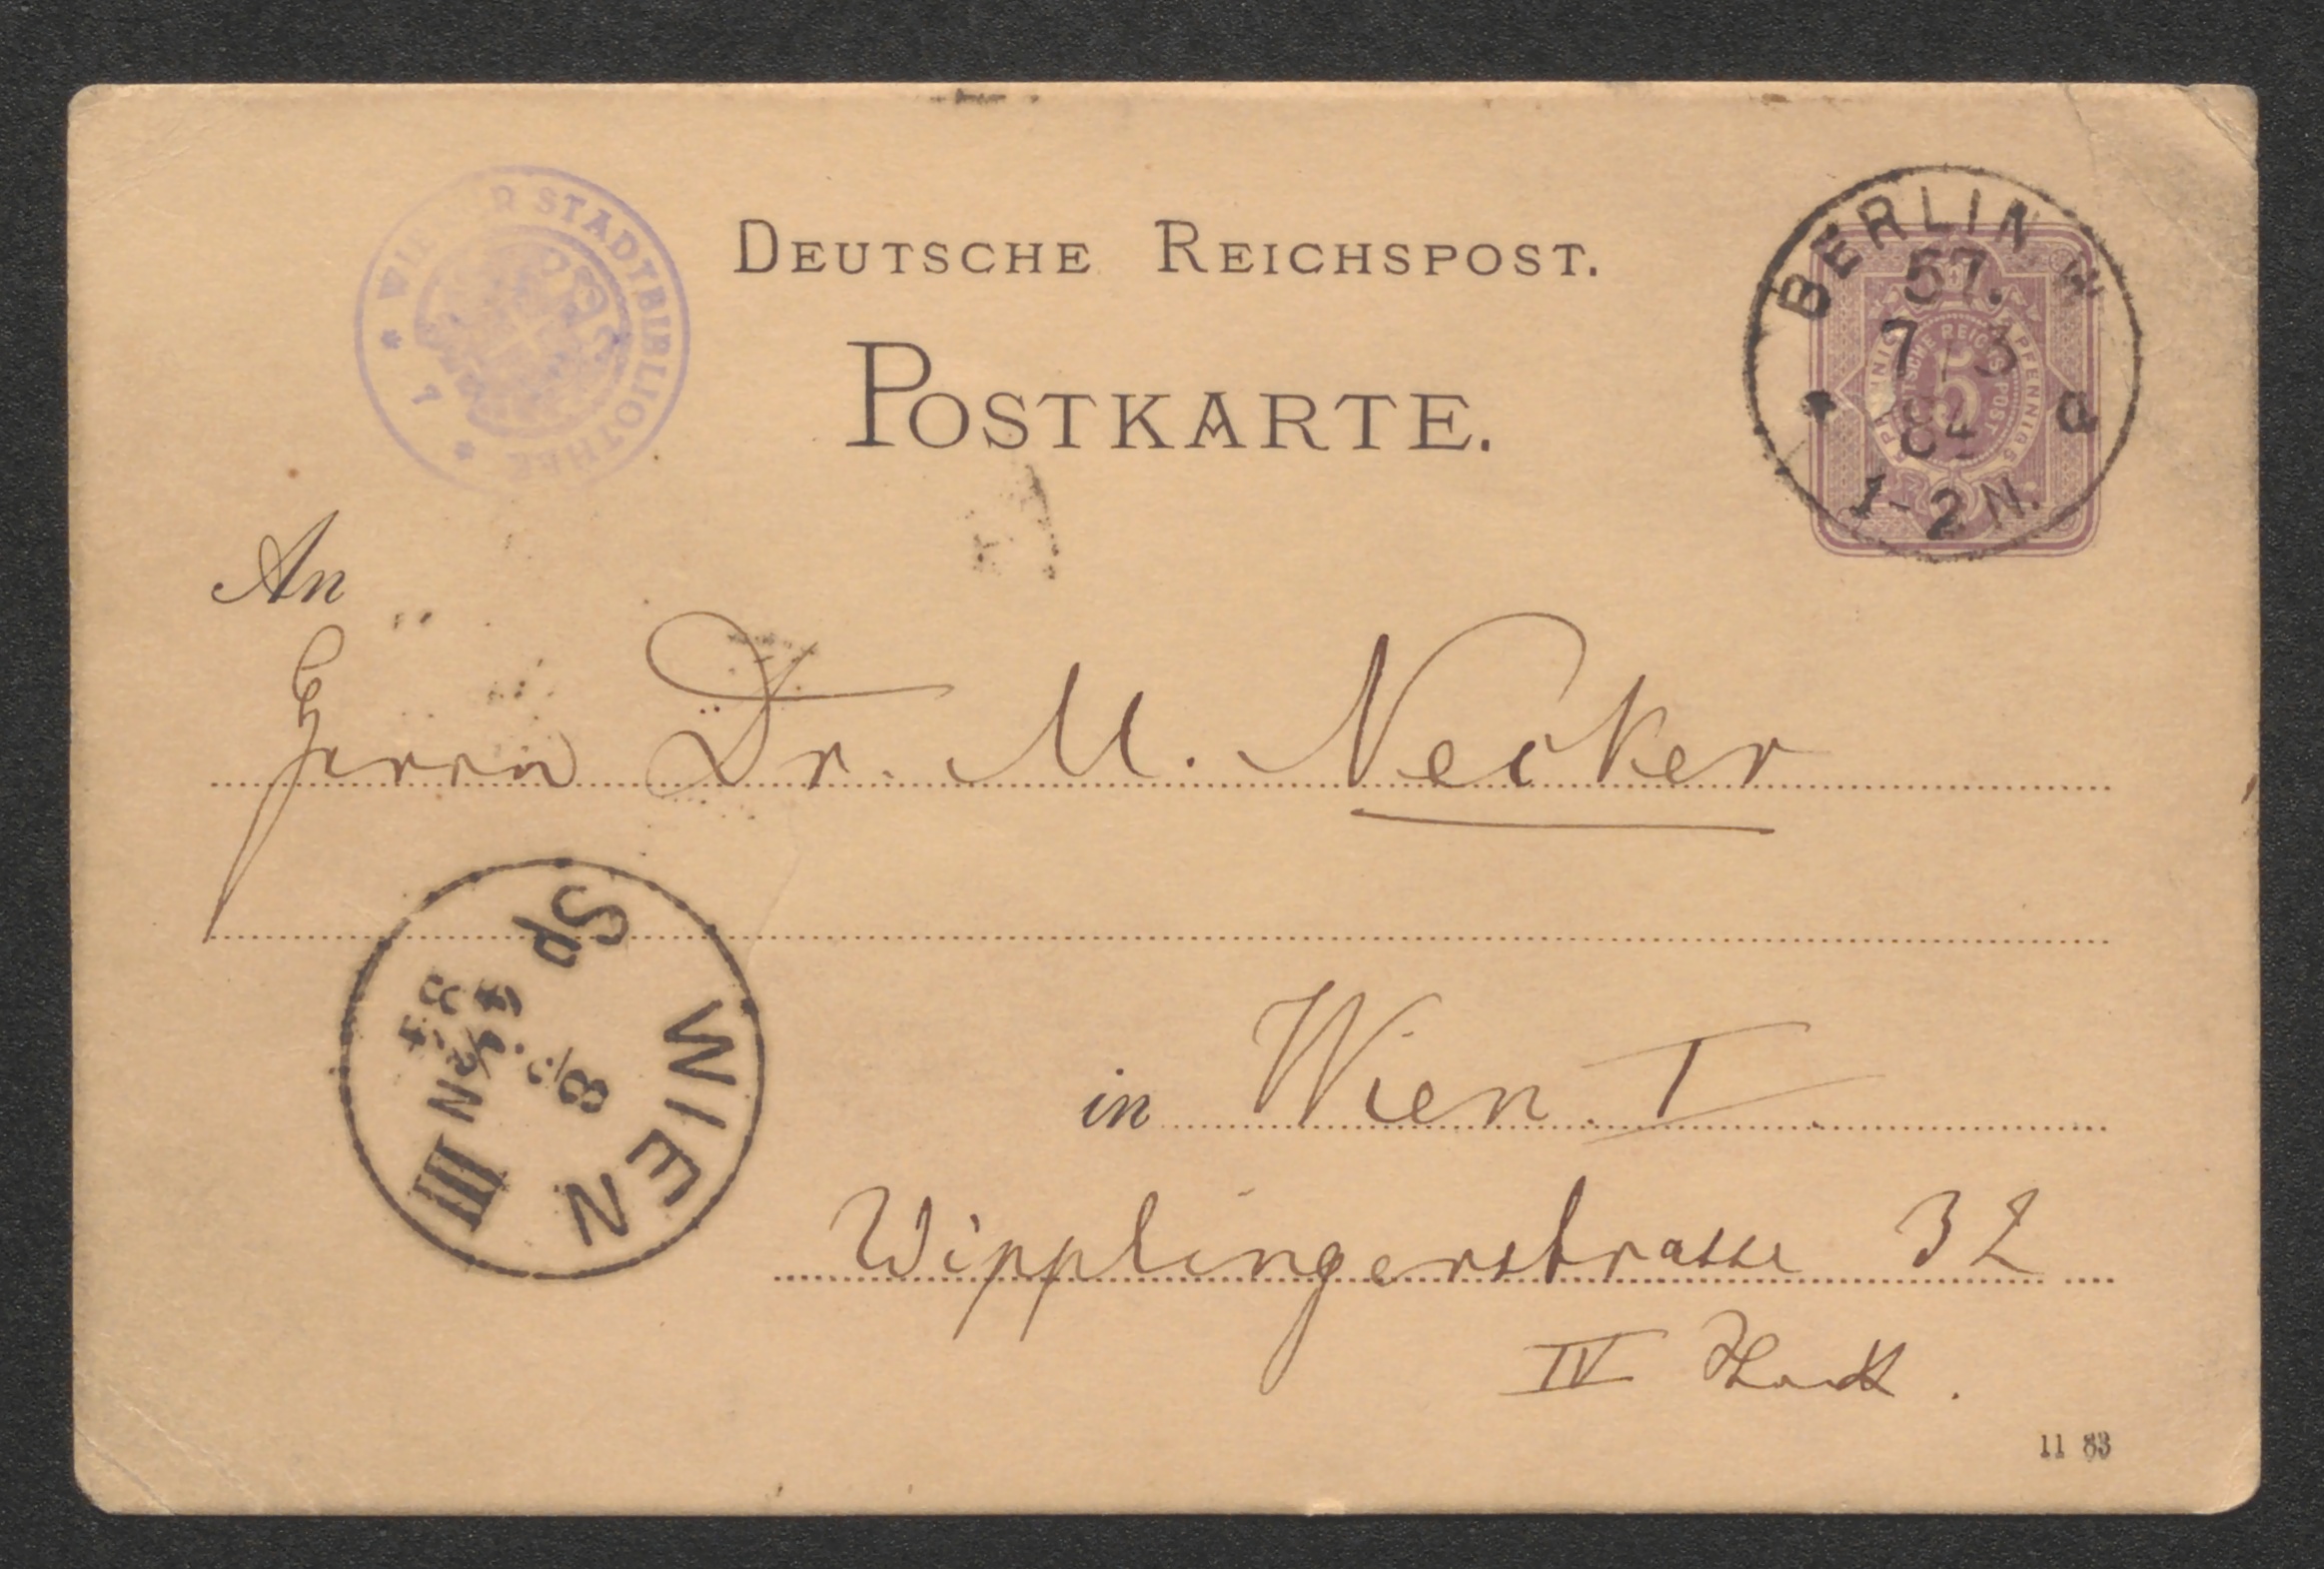 WIENER STADTBIBLIOTHEK
DEUTSCHE REICHSPOST.
POSTKARTE.
BERLIN W
57.
7 / 3
84
1-2N.
a
5
PFENNIG
DEUTSCHE REICHSPOST
An
Herrn Dr. M. Necker
in Wien I
Wipplingerstrasse 32
IV Stock.
WIEN
III
8
N
11 83